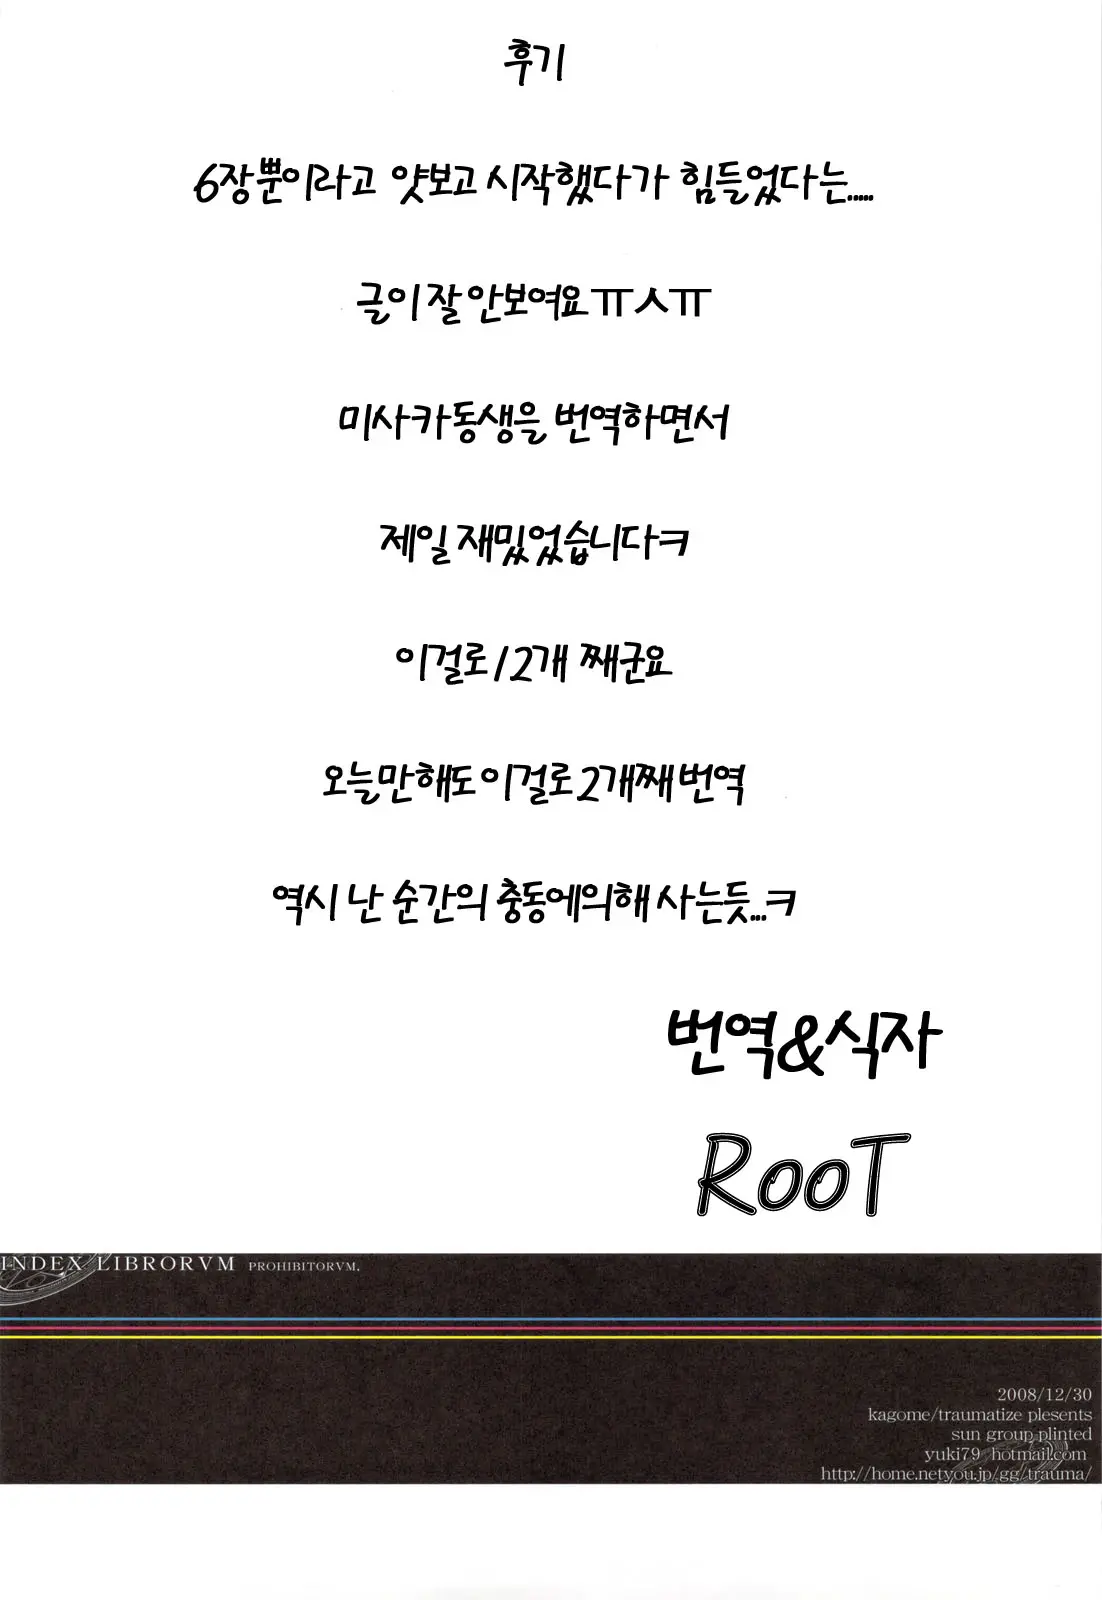 후기
6장뿐이라고 얏보고 시작했다가 힘들었다는.....
글이 잘 안보여요ㅠㅅㅠ
미사카동생을 번역하면서
제일 재밌었습니다ㅋ
이걸로12개 째군요
오늘만해도 이걸로 2개째 번역
역시 난 순간의 충동에의해 사는듯...ㅋ
번역&식자
RooT
INDEX LIBRORVM PROHIBITORVM.
2008/12/30
kagome/traumatize plesents
sun group plinted
yuki79 hotmail.com
http://home.netyou.jp/gg/trauma/